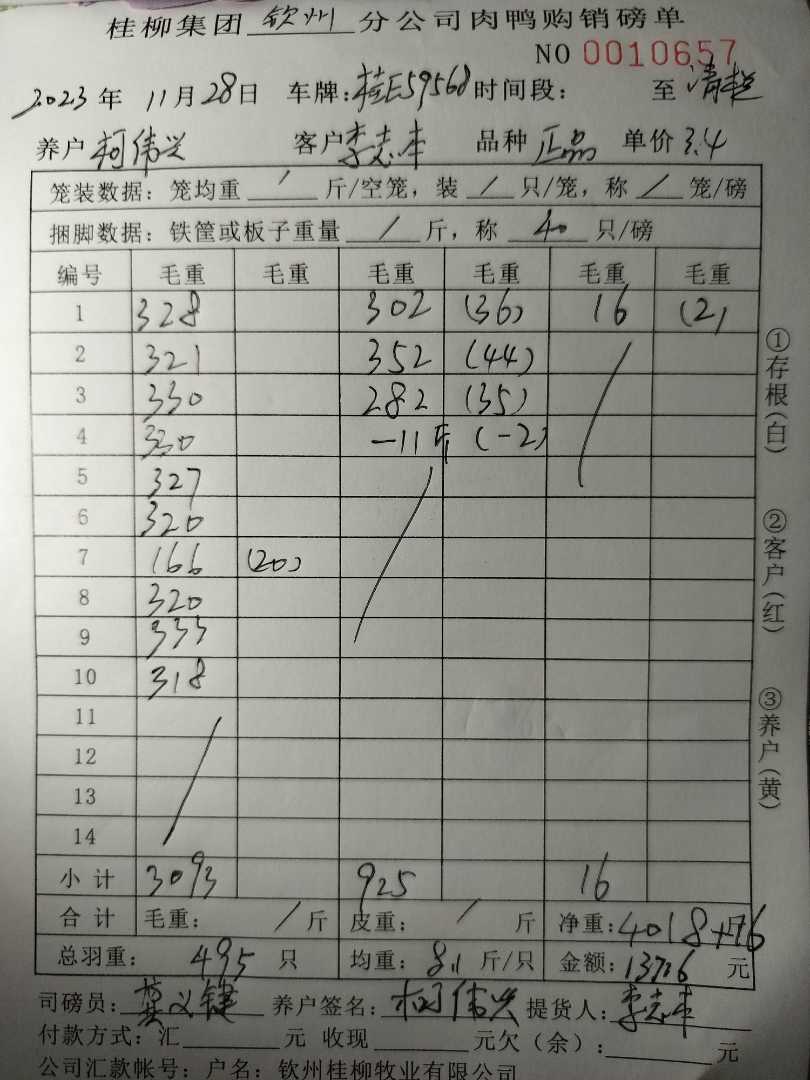 桂柳集团 钦州 分公司肉鸭购销磅单
NO 0010657
2023年 11月28日 车牌:桂E59568 时间段: 至 清超
养户 柯伟兴 客户 李志本 品种 正品 单价 3.4
笼装数据:笼均重 / 斤/空笼,装 / 只/笼,称 / 笼/磅
捆脚数据:铁筐或板子重量 / 斤,称 40 只/磅
编号 毛重 毛重 毛重 毛重 毛重 毛重
1 328 302 (36) 16 (2)
2 321 352 (44)
3 330 282 (35)
4 330 -11斤 (-2)
5 327
6 320
7 166 (20)
8 320
9 333
10 318
11
12
13
14
小计 3093 925 16
合计 毛重: / 斤 皮重: / 斤 净重:4018+16
总羽重: 495 只 均重: 8.1 斤/只 金额:13716 元
司磅员: 莫义键 养户签名: 柯伟兴 提货人: 李志本
付款方式:汇 元 收现 元欠(余): 元
公司汇款帐号:户名:钦州桂柳牧业有限公司
①存根(白)
②客户(红)
③养户(黄)